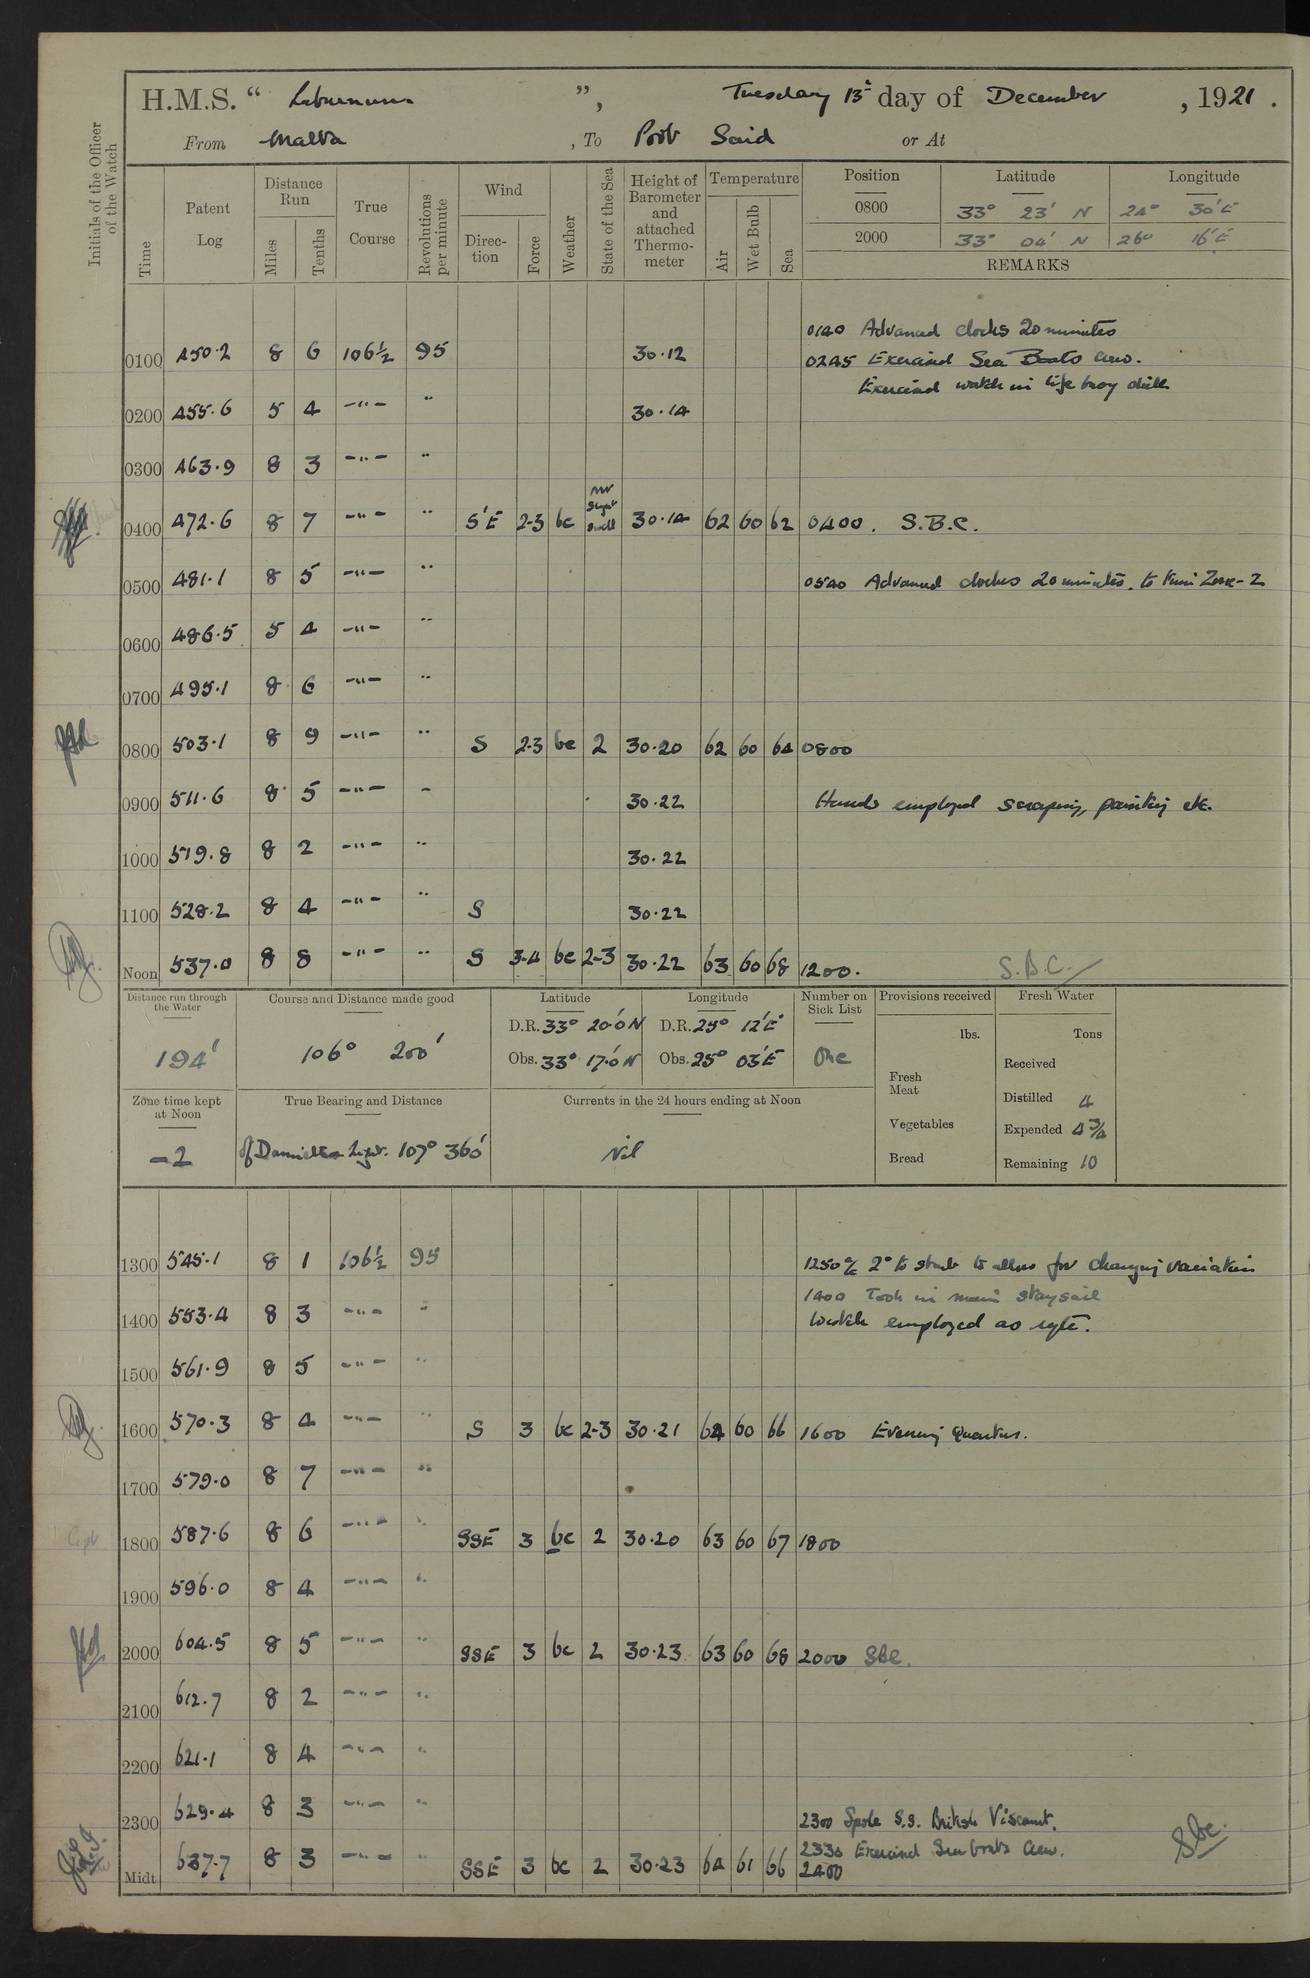 H.M.S. “ Laburnum ”, Tuesday 13th day of December, 1921.
From Malta, To Port Said or At
Initials of the Officer of the Watch
Time
Patent Log
Distance Run
Miles Tenths
True Course
Revolutions per minute
Wind
Direction Force
Weather
State of the Sea
Height of Barometer and attached Thermometer
Temperature
Air Wet Bulb Sea
Position Latitude Longitude
0800 33° 23' N 24° 30' E
2000 33° 04' N 26° 16' E
REMARKS
0140 Advanced clocks 20 minutes
0100 450.2 8 6 106½ 95 30.12 0245 Exercised Sea Boats crew.
Exercised watch in life buoy drill
0200 455.6 5 4 -"- " 30.14
0300 463.9 8 3 -"- "
0400 472.6 8 7 -"- " S'E 2-3 bc slight swell 30.14 62 60 62 0400. S.B.C.
0500 481.1 8 5 -"- " 0540 Advanced clocks 20 minutes. to time Zone -2
0600 486.5 5 4 -"- "
0700 495.1 8 6 -"- "
0800 503.1 8 9 -"- " S 2-3 bc 2 30.20 62 60 64 0800
0900 511.6 8 5 -"- " 30.22 Hands employed scraping, painting etc.
1000 519.8 8 2 -"- " 30.22
1100 528.2 8 4 -"- " S 30.22
Noon 537.0 8 8 -"- " S 3-4 bc 2-3 30.22 63 60 68 1200. S.B.C.
Distance run through the Water
194'
Course and Distance made good
106° 200'
Latitude
D.R. 33° 20.0' N
Obs. 33° 17.0' N
Longitude
D.R. 25° 12' E
Obs. 25° 03' E
Number on Sick List
One
Provisions received
lbs.
Fresh Meat
Vegetables
Bread
Fresh Water
Tons
Received
Distilled 4
Expended 4¾
Remaining 10
Zone time kept at Noon
-2
True Bearing and Distance
of Damietta Light. 107° 360'
Currents in the 24 hours ending at Noon
Nil
1300 545.1 8 1 106½ 95 1250 a/c 2° to starb to allow for changing variation
1400 Took in main staysail
1400 553.4 8 3 -"- " Watch employed as reqte.
1500 561.9 8 5 -"- "
1600 570.3 8 4 -"- " S 3 bc 2-3 30.21 64 60 66 1600 Evening Quarters.
1700 579.0 8 7 -"- "
1800 587.6 8 6 -"- " SSE 3 bc 2 30.20 63 60 67 1800
1900 596.0 8 4 -"- "
2000 604.5 8 5 -"- " SSE 3 bc 2 30.23 63 60 68 2000 SBC.
2100 612.7 8 2 -"- "
2200 621.1 8 4 -"- "
2300 629.4 8 3 -"- " 2300 Spoke S.S. British Viscount.
2330 Exercised Sea boats crew. Sbc.
Midt 637.7 8 3 -"- " SSE 3 bc 2 30.23 64 61 66 2400